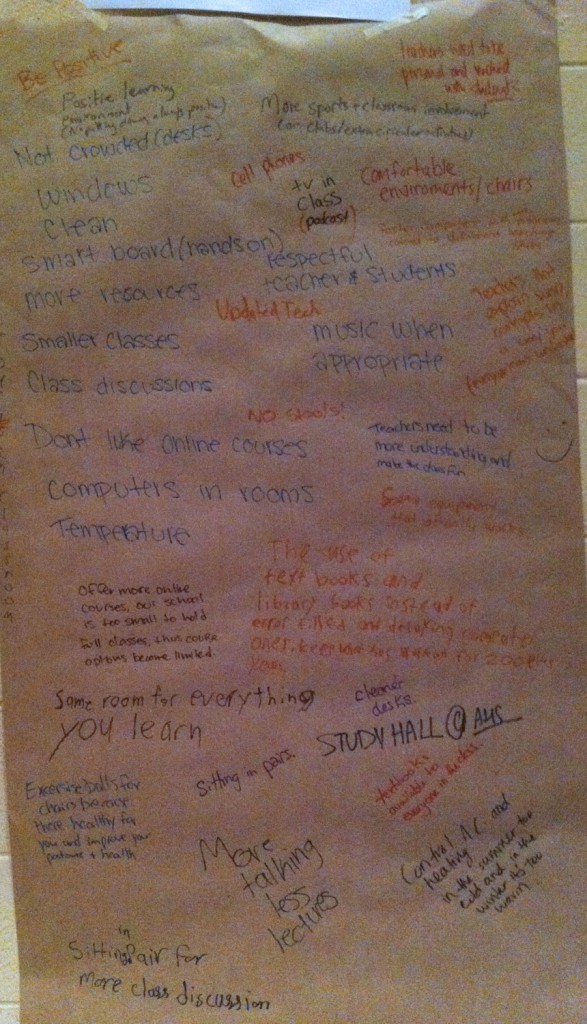 Be Positive
Teachers need to be
personal and
with
Positive learning
environment
(No putting down, always positive)
More sports + classroom involvement
(on clubs/extracurricular activities)
Not crowded (desks)
Cell phones
tv in
class
(podcast)
Comfortable
enviroments/chairs
windows
clean
smart board (hands on)
respectful
teacher & students
more resources
Updated Tech
Teachers that
explain
smaller classes
music when
appropriate
class discussions
No stools!
Dont like online courses
Teachers need to be
more understanding and
make the class fun
computers in rooms
Some equipment
that actually works
Temperature
The use of
text books and
library books instead of
error filled and
ones,
for 200 plus
years
Offer more online
courses, our school
is too small to hold
full classes, thus course
options become limited
Same room for everything
you learn
cleaner
desks.
STUDY HALL @ AHS
Sitting in pairs
textbooks
available to
everyone in the class.
Excersise balls for
chairs because
there healthy for
you and improve your
posture + health
More
talking
less
lectures
Control AC and
heating
in the summer too
cold and in the
winter its too
warm.
Sitting in Pair for
more class discussion